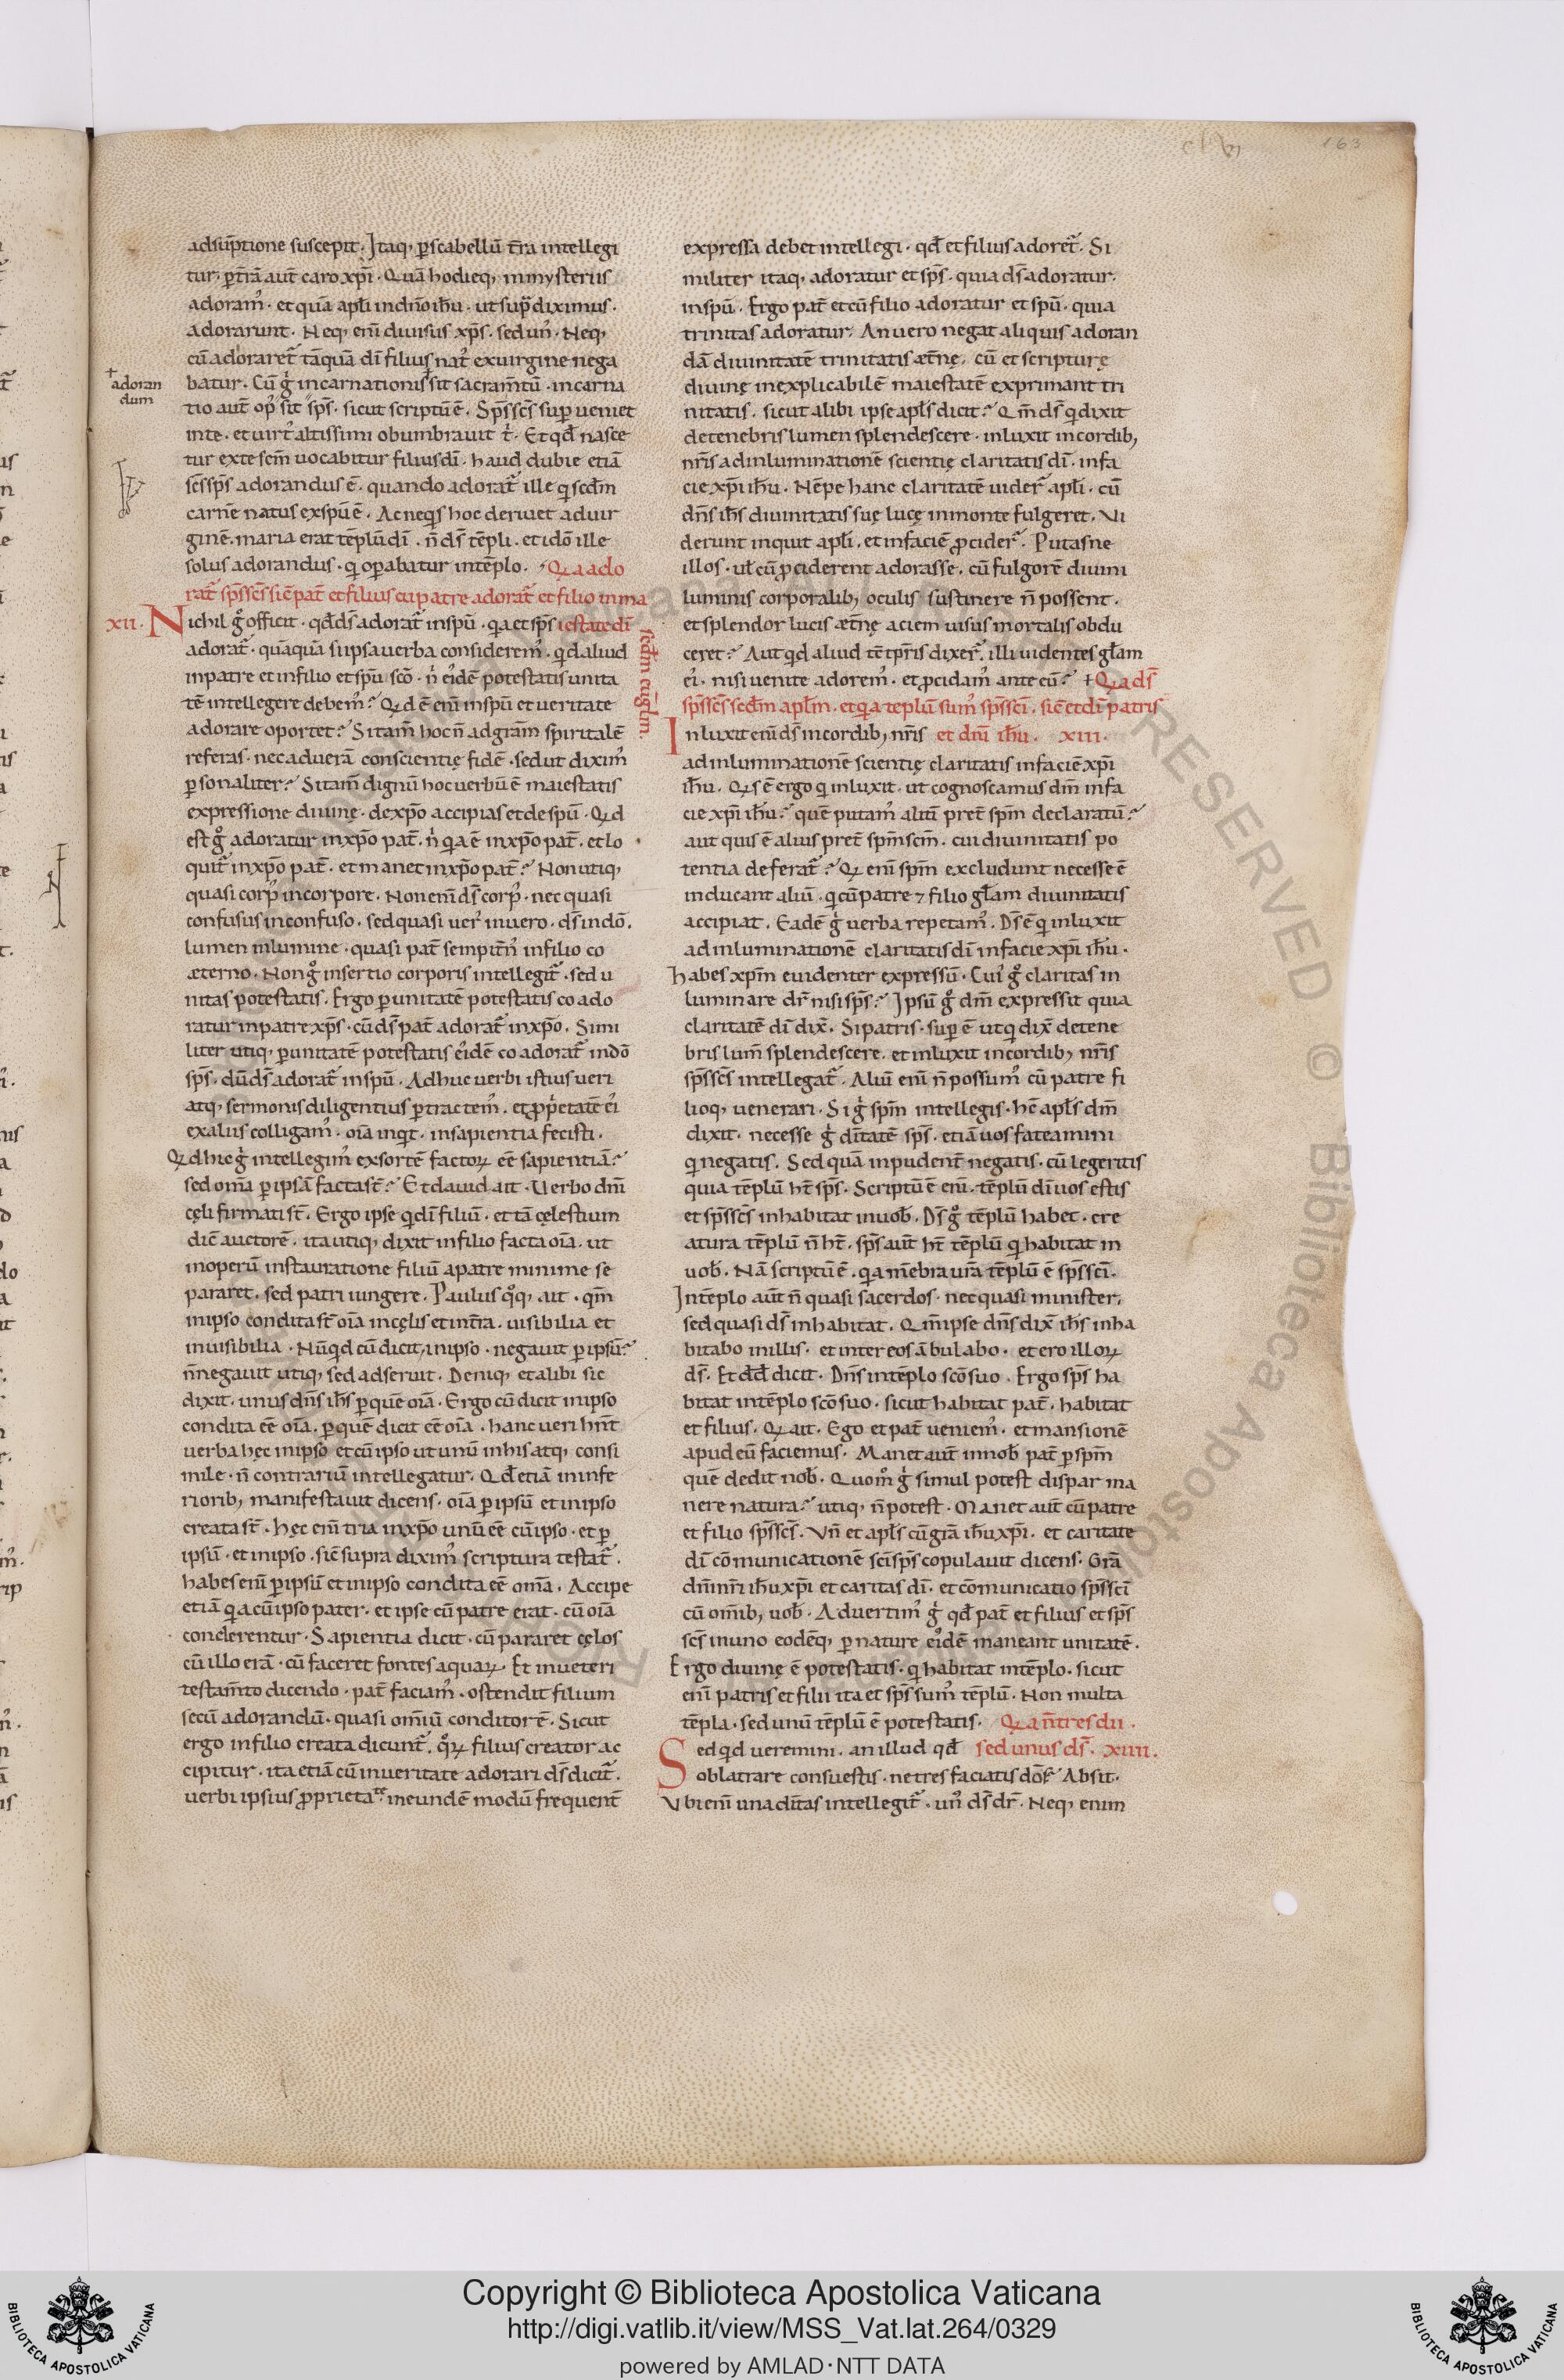 clvi
163
adsūptione suscepit. Itaq; ꝑscabellū t̄ra intellegi
tur. ꝑt̄rā aut̄ caro xp̄i. Quā hodieq; inmysteriis
adoram᾽. et quā apl̄i indn̄o ih̄u. ut sup̄ diximus.
adorarunt. Neq; enī diuisus xp̄s. sed un᾽. Neq;
cū adoraret̄ tāquā dī filius nat᾽ exuirgine nega
batur. Cū g̊ incarnationis sit sacram̄tū. incarna
tio aut̄ op᾽ sit sp̄s. sicut scriptū ē. Sp̄s sc̄s suꝑ ueniet
inte. et uirt᾽ altissimi obumbrauit t᾽. Et qd̄ nasce
tur exte sc̄m uocabitur filius dī. haud dubie etiā
sc̄s sp̄s adorandus ē. quando adorat̄ ille q scdm̄
carnē natus exspū ē. Ac neq̇s hoc deriuet aduir
ginē. maria erat tēplū dī. n̄ ds̄ tēpli. et idō ille
solus adorandus. q oꝑabatur intēplo. Qa ado
rat̄ sp̄s sc̄s sic̄ pat̄ et filius cū patre adorat̄ et filio in ma
xii. Nichil g̊ officit. qd̄ ds̄ adorat̄ inspū. qa et sp̄s iestate dī
adorat̄. quāquā sup̄sa uerba considerem᾽. qd aliud
inpatre et infilio et spū scō. n᾽ ei᾽dē potestatis unita
tē intellegere debem᾽? Qd ē enī inspū et ueritate
adorare oportet? Si tam̄ hoc n̄ ad grām spiritalē
referas. nec ad uerā conscientię fidē. sed ut dixim᾽
ꝑsonaliter? Si tam̄ dignū hoc uerbū ē maiestatis
expressione diuinę. dexp̄o accipias et de spū. Qd
est g̊ adoratur inxp̄o pat̄. n᾽ qa ē inxp̄o pat̄. et lo
quit̄ inxp̄o pat̄. et manet inxp̄o pat̄? Non utiq;
quasi corp᾽ incorpore. Non enī ds̄ corp᾽. nec quasi
confusus inconfuso. sed quasi uer᾽ inuero. ds̄ indō.
lumen inlumine. quasi pat̄ sempit̄n᾽ infilio co
æterno. Non g̊ insertio corporis intellegit̄. sed u
nitas potestatis. Ergo ꝑunitatē potestatis co ado
ratur inpatre xp̄s. cū ds̄ pat̄ adorat̄ inxp̄o. Simi
liter utiq; ꝑunitatē potestatis ei᾽dē co adorat̄ indō
sp̄s. dū ds̄ adorat̄ inspū. Adhuc uerbi istius ueri
atq; sermonis diligentius ꝑtractem᾽. et ꝓp᾽etatē ei᾽
exaliis colligam᾽. oīa inqt. insapientia fecisti.
Qd hic g̊ intellegim᾽ exsortē factoꝝ eē sapientiā?
sed om̄a ꝑ ipsā facta st̄? Et dauid ait. Verbo dn̄i
cęli firmati st̄. Ergo ipse q dī filiū. et tā cęlestium
dic̄ auctorē. ita utiq; dixit infilio facta oīa. ut
inoperū instauratione filiū apatre minime se
pararet. sed patri iungere. Paulus qoq; ait. qm̄
inipso condita st̄ oīa incęlis et int̄ra. uisibilia et
inuisibilia. Nūqd cū dicit, inipso. negauit ꝑ ipsū?
n̄ negauit utiq; sed adseruit. Deniq; et alibi sic
dixit. unus dn̄s ih̄s ꝑ quē oīa. Ergo cū dicit inipso
condita eē oīa. ꝑ quē dicit eē oīa. hanc ueri hn̄t
uerba hęc inipso et cū ipso ut unū inhis atq; consi
mile. n̄ contrariū intellegatur. Qd̄ etiā ininfe
riorib; manifestauit dicens. oīa ꝑ ipsū et inipso
creata st̄. hęc enī tria inxp̄o unū eē cū ipso. et ꝑ
ipsū. et inipso. sic̄ supra dixim᾽ scriptura testat̄.
habes enī ꝑ ipsū et inipso condita eē om̄a. Accipe
etiā qa cū ipso pater. et ipse cū patre erat. cū oīa
conderentur. Sapientia dicit. cū pararet cęlos
cū illo erā. cū faceret fontes aquaꝝ. Et inueteri
testam̄to dicendo. pat̄ faciam᾽. ostendit filium
secū adorandū. quasi omniū conditorē. Sicut
ergo infilio creata dicunt̄. qoꝝ filius creator ac
cipitur. ita etiā cū inueritate adorari ds̄ dicit̄.
uerbi ipsius ꝓprietate ineundē modū frequent̄
+ adoran
dum
scdm̄ eug̅lm.
expressa debet intellegi. qd̄ et filius adoret̄. Si
militer itaq; adoratur et sp̄s. quia ds̄ adoratur.
inspū. Ergo pat̄ et cū filio adoratur et spū. quia
trinitas adoratur. An uero negat aliquis adoran
dā diuinitatē trinitatis æt̄nę. cū et scripturę
diuinę inexplicabilē maiestatē exprimant tri
nitatis. sicut alibi ipse apl̄s dicit? Qm̄ ds̄ q dixit
detenebris lumen splendescere. inluxit incordib;
nr̄is adinluminationē scientię claritatis dī. infa
cie xp̄i ih̄u. Nēpe hanc claritatē uider̄ apl̄i. cū
dn̄s ih̄s diuinitatis suę lucę inmonte fulgeret. Vi
derunt inquit apl̄i. et infaciē ꝓcider̄. Putasne
illos. ul̄ cū ꝓciderent adorasse. cū fulgorē diuini
luminis corporalib; oculis sustinere n̄ possent.
et splendor lucis æt̄nę aciem uisus mortalis obdu
ceret? Aut qd aliud tē tꝑris dixer̄. illi uidentes gl̄am
ei᾽. nisi uenite adorem᾽. et ꝓcidam᾽ ante eū? + Qa ds̄
sp̄s sc̄s scdm̄ aplm̄. et qa teplū sum᾽ sp̄s sc̄i. sic̄ et dī patris
Inluxit enī ds̄ incordib; nr̄is et dn̄i ih̄u. xiii.
adinluminationē scientię claritatis infaciē xp̄i
ih̄u. Qs ē ergo q inluxit. ut cognoscamus dm̄ infa
cie xp̄i ih̄u? quē putam᾽ aliū pret̄ spm̄ declaratū?
aut quis ē alius pret̄ spm̄ scm̄. cui diuinitatis po
tentia deferat̄? Q enī spm̄ excludunt necesse ē
inducant aliū. q cū patre ⁊ filio gl̄am diuinitatis
accipiat. Eadē g̊ uerba repetam᾽. Ds̄ ē q inluxit
adinluminationē claritatis dī infacie xp̄i ih̄u.
habes xpm̄ euidenter expressū. Cui᾽ g̊ claritas in
luminare dr̄ nisi sp̄s? Ipsū g̊ dm̄ expressit quia
claritatē dī dix̄. Si patris. suꝑ ē ut q dix̄ detene
bris lum̄ splendescere. et inluxit incordib; nr̄is
sp̄s sc̄s intellegat̄. Aliū enī n̄ possum᾽ cū patre fi
lioq; uenerari. Si g̊ spm̄ intellegis. hc̄ apl̄s dm̄
dixit. necesse g̊ dītatē sp̄s. etiā uos fateamini
q negatis. Sed quā inpudent̄ negatis. cū legeritis
quia tēplū ht̄ sp̄s. Scriptū ē enī. tēplū dī uos estis
et sp̄s sc̄s inhabitat inuob̄. Ds̄ g̊ tēplū habet. cre
atura tēplū n̄ ht̄. sp̄s aut̄ ht̄ tēplū q habitat in
uob̄. Nā scriptū ē. qa mēbra ur̄a tēplū ē sp̄s sc̄i.
Intēplo aut̄ n̄ quasi sacerdos. nec quasi minister.
sed quasi ds̄ inhabitat. Qm̄ ipse dn̄s dix̄ ih̄s inha
bitabo inillis. et inter eos ābulabo. et ero illoꝝ
ds̄. Et dd̄ dicit. Dn̄s intēplo scō suo. Ergo sp̄s ha
bitat intēplo scō suo. sicut habitat pat̄. habitat
et filius. Q ait. Ego et pat̄ ueniem᾽. et mansionē
apud eū faciemus. Manet aut̄ innob̄ pat̄ ꝑ spm̄
quē dedit nob̄. Quom̊ g̊ simul potest dispar ma
nere natura? utiq; n̄ potest. Manet aut̄ cū patre
et filio sp̄s sc̄s. Vn̄ et apl̄s cū grā ih̄u xp̄i. et caritate
dī cōmunicationē sc̄i sp̄s copulauit dicens. Grā
dn̄i nr̄i ih̄u xp̄i et caritas dī. et cōmunicatio sp̄s sc̄i
cū om̄ib; uob̄. Aduertim᾽ g̊ qd̄ pat̄ et filius et sp̄s
sc̄s inuno eodēq; ꝑ nature ei᾽dē maneant unitatē.
Ergo diuinę ē potestatis. q habitat intēplo. sicut
enī patris et filii ita et sp̄s sum᾽ tēplū. Non multa
tēpla. sed unū tēplū ē potestatis. Qa n̄ tres dii.
Sed qd ueremini. an illud qd̄ sed unus ds̄. xiiii.
oblatrare consuestis. ne tres faciatis dōs? Absit.
Vbi enī una dītas intellegit̄. un᾽ ds̄ dr̄. Neq; enim
RIGHTS RESERVED © Biblioteca Apostolica Vaticana
Copyright © Biblioteca Apostolica Vaticana
http://digi.vatlib.it/view/MSS_Vat.lat.264/0329
powered by AMLAD·NTT DATA
BIBLIOTECA APOSTOLICA VATICANA
BIBLIOTECA APOSTOLICA VATICANA